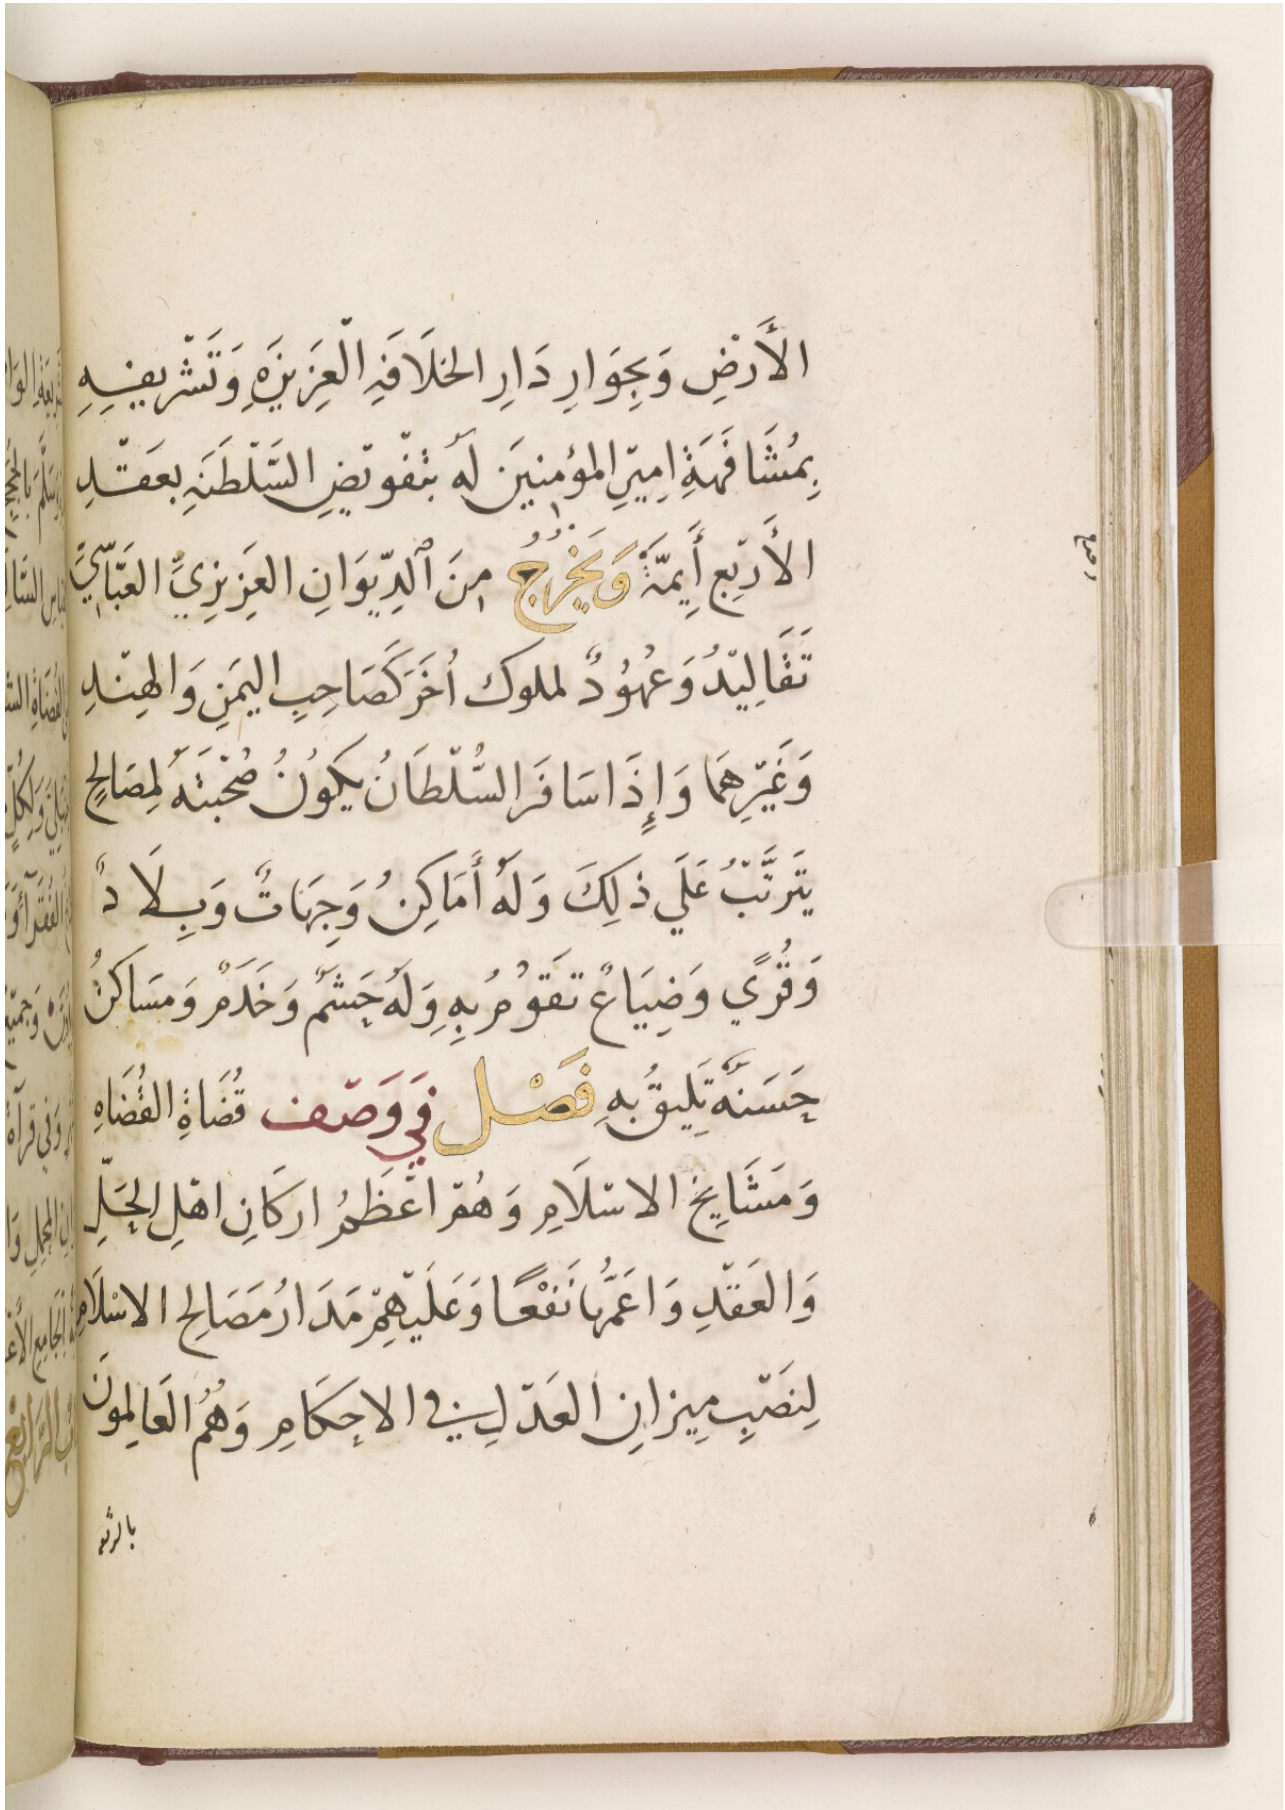 الأَرْضِ وَبِجِوَارِ دَارِ الخلَافَةِ الْعَزِيزَةِ وَتَشْرِيفِهِ
بِمُشَافَهَةِ امِيرِ المؤمنينَ لَهُ بتفويضِ السَّلْطَنَةِ بعَقْدِ
الأَرْبَعِ أَيِمَّةً وَيَخْرُجُ مِنَ ٱلدِّيوَانِ العَزِيزِيِّ العَبَّاسِيِّ
تَقَالِيْدُ وَعُهُوُدٌ لملوك أُخَرَ كَصَاحِبِ اليمَنِ وَالهِنْدِ
وَغَيْرِهِمَا وَإِذَا سَافَرَ السُّلْطَانُ يكَوُنُ صُحْبَتَهُ لِمصَالِحٍ
يتَرتَّبُ عَلَي ذلِكَ وَلَهُ أَمَاكِنُ وَجِهَاتٌ وَبِلَادٌ
وَقُرًي وَضِيَاعٌ تقَوُمُ بِهِ وَلَهُ حَشَمٌ وَخَدَمٌ وَمسَاكنُ
حَسَنَةٌ تَلِيقُ بِهِ فَصْل فَي وَصْف قُضَاةِ القُضَاهِ
وَمَشَايِخِ الاسْلَامِ وَهُمْ اعْظَمُ اركَانِ اهْلِ الحَلِّ
وَالعَقْدِ وَاعَمُّهَا نَفْعًا وَعَلَيْهِمْ مَدَارُ مَصَالِحِ الاسْلَامِ
لِنصْبِ مِيزانِ العَدْلِ في الاحكَامِ وَهُمُ العَالِمُونَ